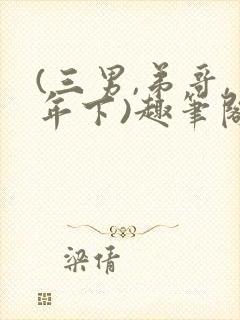 (三男,弟哥,
年下)趣笔阁
梁倩